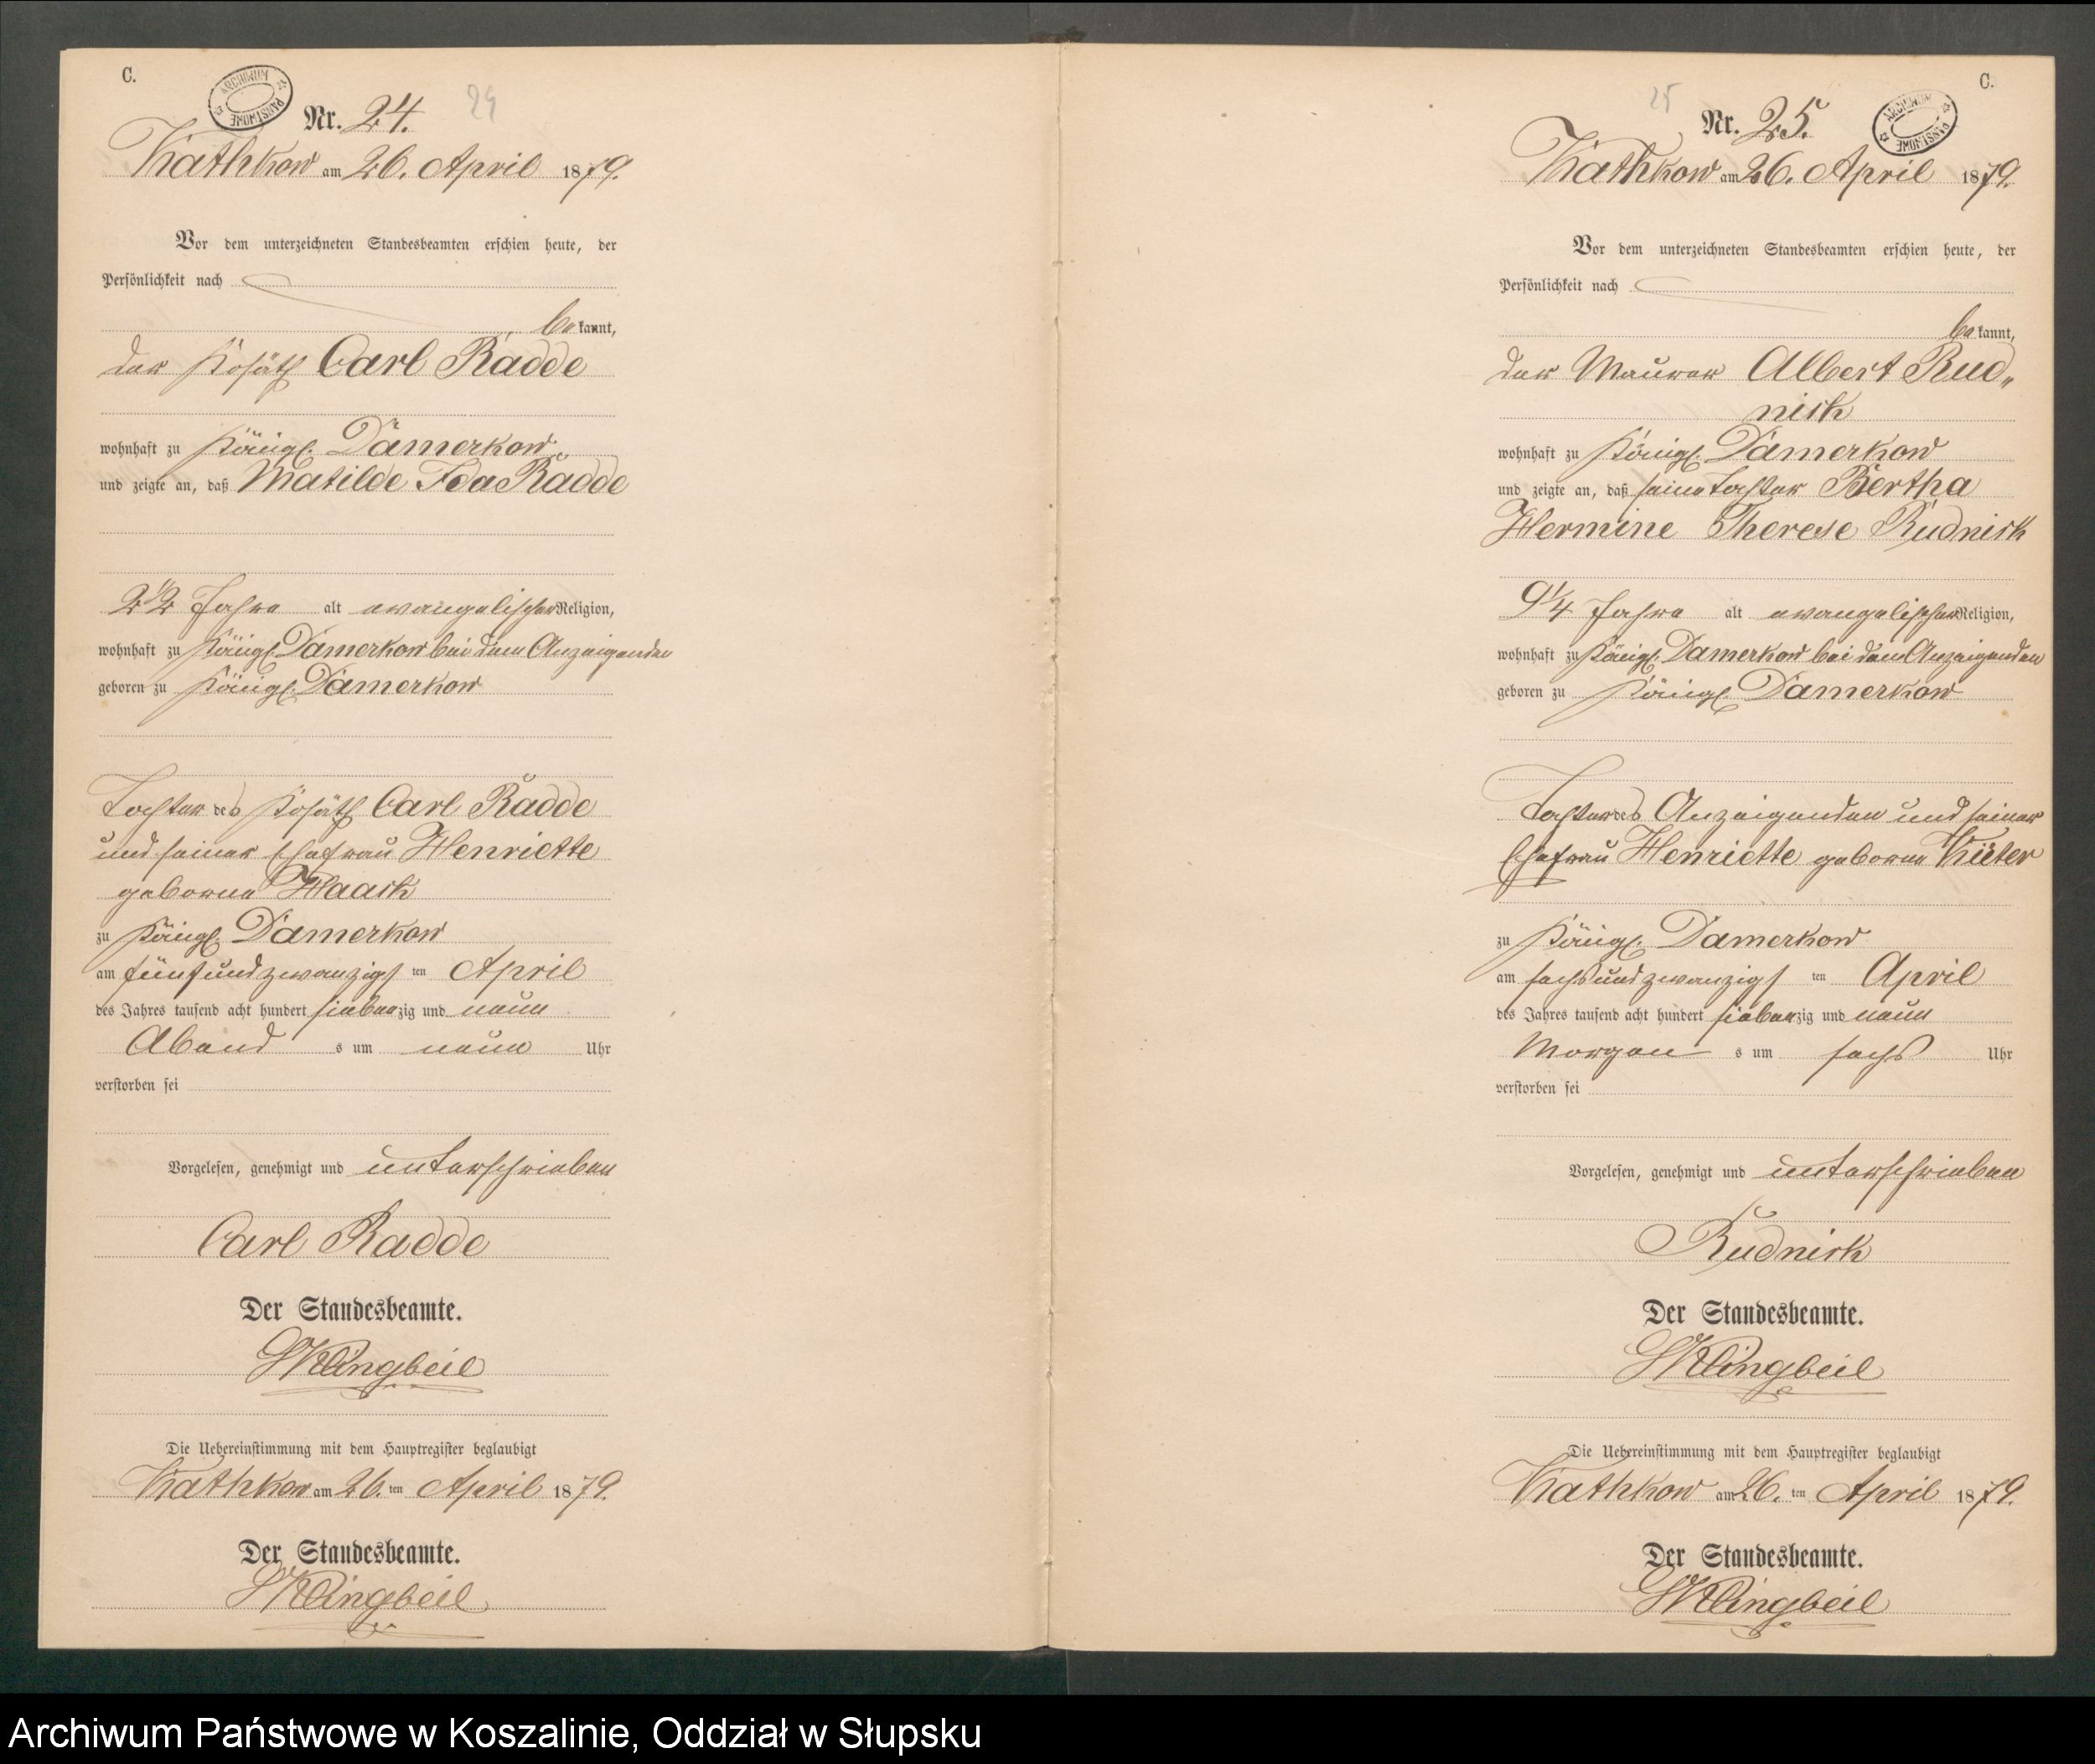 C.
ARCHIWUM PAŃSTWOWE
Nr. 24.
24
Kathkow am 26. April 1879.
Vor dem unterzeichneten Standesbeamten erschien heute, der
Persönlichkeit nach
bekannt,
der Kosäth Carl Radde
wohnhaft zu Königl. Damerkow
und zeigte an, daß Matilde Ida Radde
2 1/2 Jahre alt evangelischer Religion,
wohnhaft zu Königl. Damerkow bei dem Anzeigenden
geboren zu Königl. Damerkow
Tochter des Kosäth Carl Radde
und seiner Ehefrau Henriette
geborene Haack
zu Königl. Damerkow
am fünfundzwanzigsten April
des Jahres tausend acht hundert siebenzig und neun
Abends um neun Uhr
verstorben sei
Vorgelesen, genehmigt und unterschrieben
Carl Radde
Der Standesbeamte.
Klingbeil
Die Uebereinstimmung mit dem Hauptregister beglaubigt
Kathkow am 26.ten April 1879.
Der Standesbeamte.
Klingbeil
C.
25
Nr. 25.
ARCHIWUM PAŃSTWOWE
Kathkow am 26. April 1879.
Vor dem unterzeichneten Standesbeamten erschien heute, der
Persönlichkeit nach
bekannt,
der Maurer Albert Rud„
nick
wohnhaft zu Königl. Damerkow
und zeigte an, daß seine Tochter Bertha
Hermine Therese Rudnick
9 1/4 Jahre alt evangelischer Religion,
wohnhaft zu Königl. Damerkow bei dem Anzeigenden
geboren zu Königl. Damerkow
Tochter des Anzeigenden und seiner
Ehefrau Henriette geborne Küter
zu Königl. Damerkow
am sechsundzwanzigsten April
des Jahres tausend acht hundert siebenzig und neun
Morgens um sechs Uhr
verstorben sei
Vorgelesen, genehmigt und unterschrieben
Rudnick
Der Standesbeamte.
Klingbeil
Die Uebereinstimmung mit dem Hauptregister beglaubigt
Kathkow am 26.ten April 1879.
Der Standesbeamte.
Klingbeil
Archiwum Państwowe w Koszalinie, Oddział w Słupsku